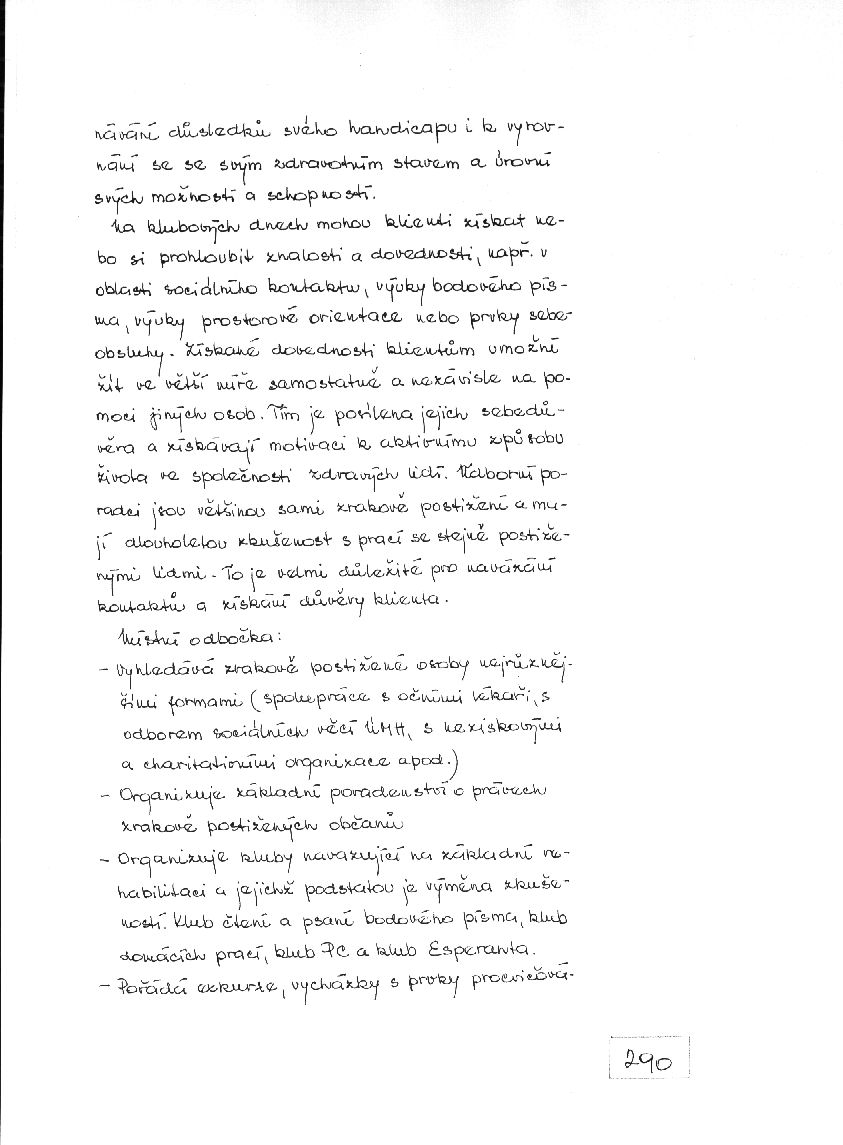 návání důsledků svého handicapu i k vyrov-
nání se se svým zdravotním stavem a úrovní
svých možností a schopností.
Na klubových dnech mohou klienti získat ne-
bo si prohloubit znalosti a dovednosti, např. v
oblasti sociálního kontaktu, výuky bodového pís-
ma, výuky prostorové orientace nebo prvky sebe-
obsluhy. Získané dovednosti klientům umožní
žít ve větší míře samostatně a nezávisle na po-
moci jiných osob. Tím je posílena jejich sebedů-
věra a získávají motivaci k aktivnímu způsobu
života ve společnosti zdravých lidí. Odborní po-
radci jsou většinou sami zrakově postižení a ma-
jí dlouholetou zkušenost s prací se stejně postiže-
nými lidmi. To je velmi důležité pro navázání
kontaktů a získání důvěry klienta.
Místní odbočka:
- Vyhledává zrakově postižené osoby nejrůzněj-
šími formami (spolupráce s očními lékaři, s
odborem sociálních věcí ÚMH, s neziskovými
a charitativními organizace apod.)
- Organizuje základní poradenství o právech
zrakově postižených občanů
- Organizuje kluby navazující na základní re-
habilitaci a jejichž podstatou je výměna zkuše-
ností. Klub čtení a psaní bodového písma, klub
domácích prací, klub PC a klub Esperanta.
- Pořádá exkurze, vycházky s prvky procvičová-
290